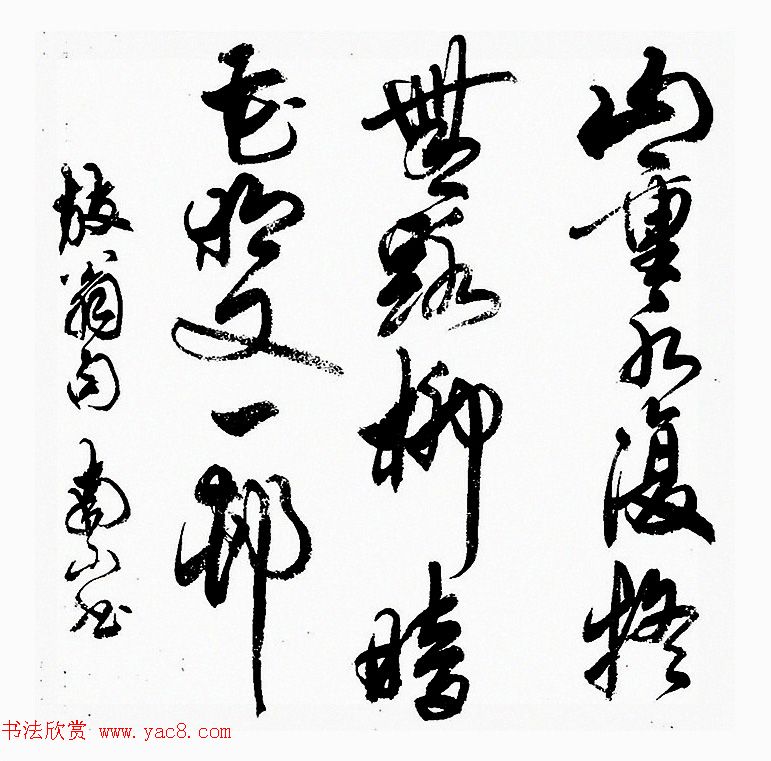 山重水復疑
無路柳暗
花明又一邨
放翁句
书法欣赏 www.yac8.com